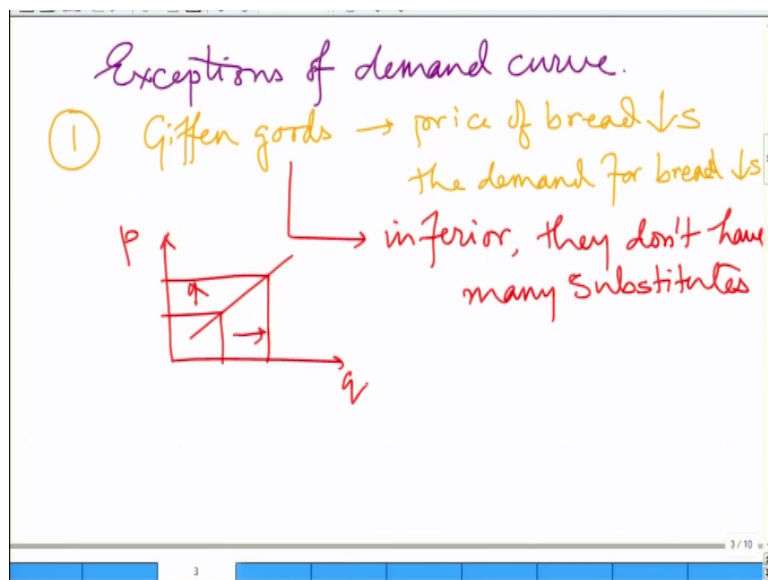 Exceptions of demand curve.
1 Giffen goods → price of bread ↓s
the demand for bread ↓s
inferior, they don't have
many substitutes
p
q
3 / 10
3